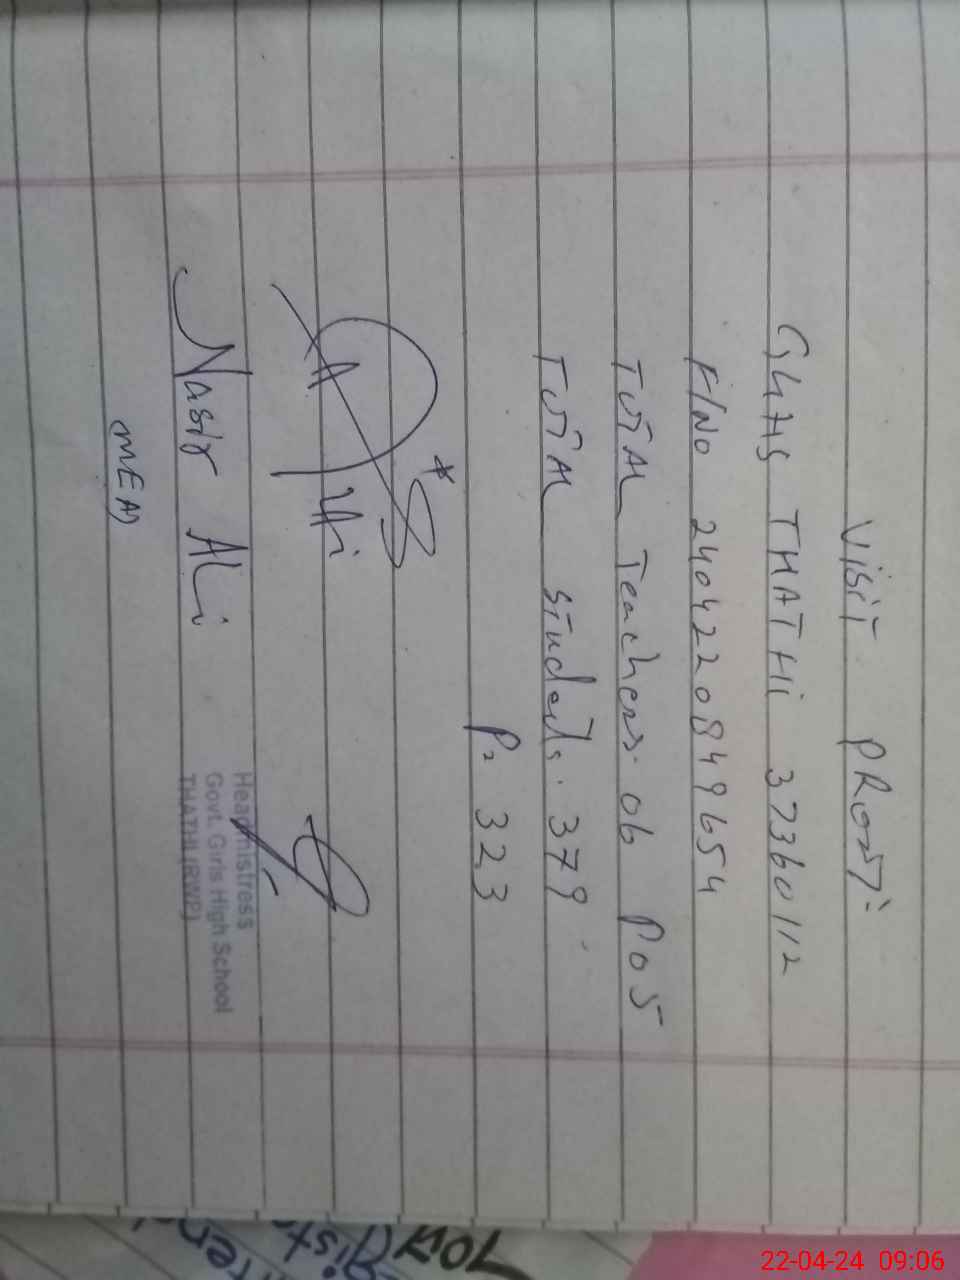 Visit PRoof:
GGHS THATHi 37360112
F/No 2404220849654
TOTAL Teachers. 06 P05
TOTAL Students. 379
P= 323
Nasir ALi
MEA
Headmistress
Govt. Girls High School
THATHI (RWP)
22-04-24 09:06